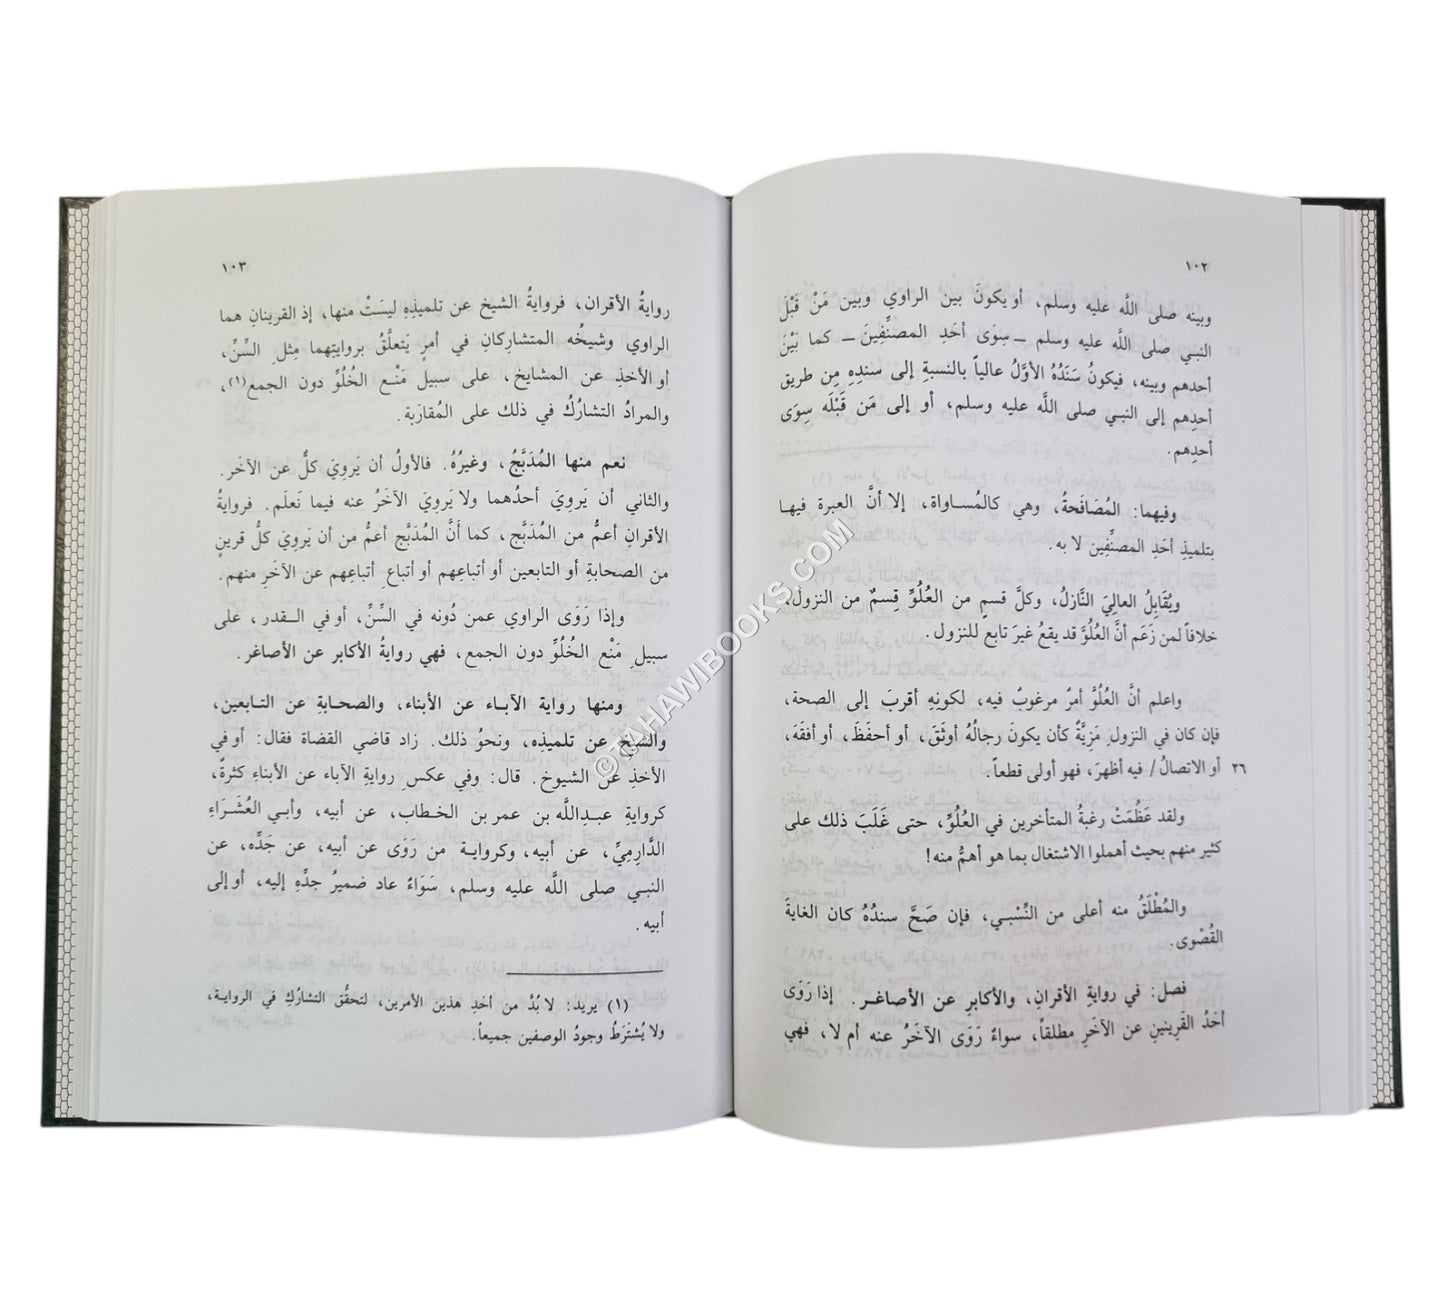 ١٠٢
وبينه صلى اللَّه عليه وسلم، أو يكونَ بين الراوي وبين مَنْ قَبْلَ
النبي صلى اللَّه عليه وسلم ــ سِوَى أحَدِ المصنِّفِينَ ــ كما بَيْنَ
أحدهم وبينه، فيكونُ سَنَدُهُ الأوَّلُ عالياً بالنسبةِ إلى سندِهِ مِن طريق
أحدِهم إلى النبي صلى اللَّه عليه وسلم، أو إلى مَن قَبْلَه سِوَى
أحدِهم.
وفيهما: المُصَافَحةُ، وهي كالمُساواة، إلا أنَّ العبرة فيها
بتلميذِ أحَدِ المصنِّفِين لا به.
ويُقَابِلُ العالِيَ النَّازلُ، وكلُّ قسمٍ من العُلُوِّ قِسمٌ من النزول،
خلافاً لمن زَعَم أنَّ العُلُوَّ قد يقعُ غيرَ تابع للنزول.
واعلم أنَّ العُلُوَّ أمرٌ مرغوبٌ فيه، لكونِه أقربَ إلى الصحة،
فإن كان في النزولِ مَزِيَّةٌ كأن يكونَ رجالُهُ أوثَقَ، أو أحفَظَ، أو أفقَهَ،
أو الاتصالُ / فيه أظهرَ، فهو أولى قطعاً. ٢٦
ولقد عَظُمَتْ رغبةُ المتأخرين في العُلُوِّ، حتى غَلَبَ ذلك على
كثير منهم بحيث أهملوا الاشتغال بما هو أهمُّ منه!
والمُطْلَقُ منه أعلى من النِّسْبي، فإن صَحَّ سندُهُ كان الغايةَ
القُصْوى.
فصل: في روايةِ الأقرانِ، والأكابرِ عن الأصاغر. إذا رَوَى
أحَدُ القَرِينينِ عن الآخَرِ مطلقاً، سواءٌ رَوَى الآخَرُ عنه أم لا، فهي
١٠٣
روايةُ الأقران، فروايةُ الشيخ عن تلميذِهِ ليسَتْ منها، إذ القرينانِ هما
الراوي وشيخُه المتشارِكانِ في أمرٍ يَتعلَّقُ بروايتِهما مِثلِ السِّنِّ،
أو الأخذِ عن المشايخ، على سبيل مَنْع الخُلُوِّ دون الجمع(١)،
والمرادُ التشارُكُ في ذلك على المُقارَبة.
نعم منها المُدَبَّجُ، وغيرُهُ. فالأولُ أن يَروِيَ كلٌّ عن الآخَر.
والثاني أن يَروِيَ أحدُهما ولا يَروِيَ الآخَرُ عنه فيما نَعلَم. فروايةُ
الأقرانِ أعمُّ من المُدَبَّج، كما أنَّ المُدَبَّج أعمُّ من أن يَروِيَ كلُّ قرينٍ
من الصحابةِ أو التابعين أو أتباعِهم أو أتباع أتباعِهم عن الآخَرِ منهم.
وإذا رَوَى الراوي عمن دُونه في السِّنِّ، أو في القدر، على
سبيلِ مَنْع الخُلُوِّ دون الجمع، فهي روايةُ الأكابر عن الأصاغر.
ومنها رواية الآباء عن الأبناء، والصحابةِ عن التابعين،
والشيخ عن تلميذِه، ونحوُ ذلك. زاد قاضي القضاة فقال: أو في
الأخذِ عن الشيوخ. قال: وفي عكسِ روايةِ الآباء عن الأبناءِ كثرةٌ،
كروايةِ عبدِاللَّه بن عمر بن الخطاب، عن أبيه، وأبي العُشَراءِ
الدَّارِمِيِّ، عن أبيه، وكرواية من رَوَى عن أبيه، عن جَدِّه، عن
النبي صلى اللَّه عليه وسلم، سَوَاءٌ عاد ضميرُ جدِّهِ إليه، أو إلى
أبيه.
(١) يريد: لا بُدَّ من أحَدِ هذين الأمرين، لتحقُّق التشارُكِ في الرواية،
ولا يُشتَرَطُ وجودُ الوصفين جميعاً.
©TAHAWIBOOKS.COM